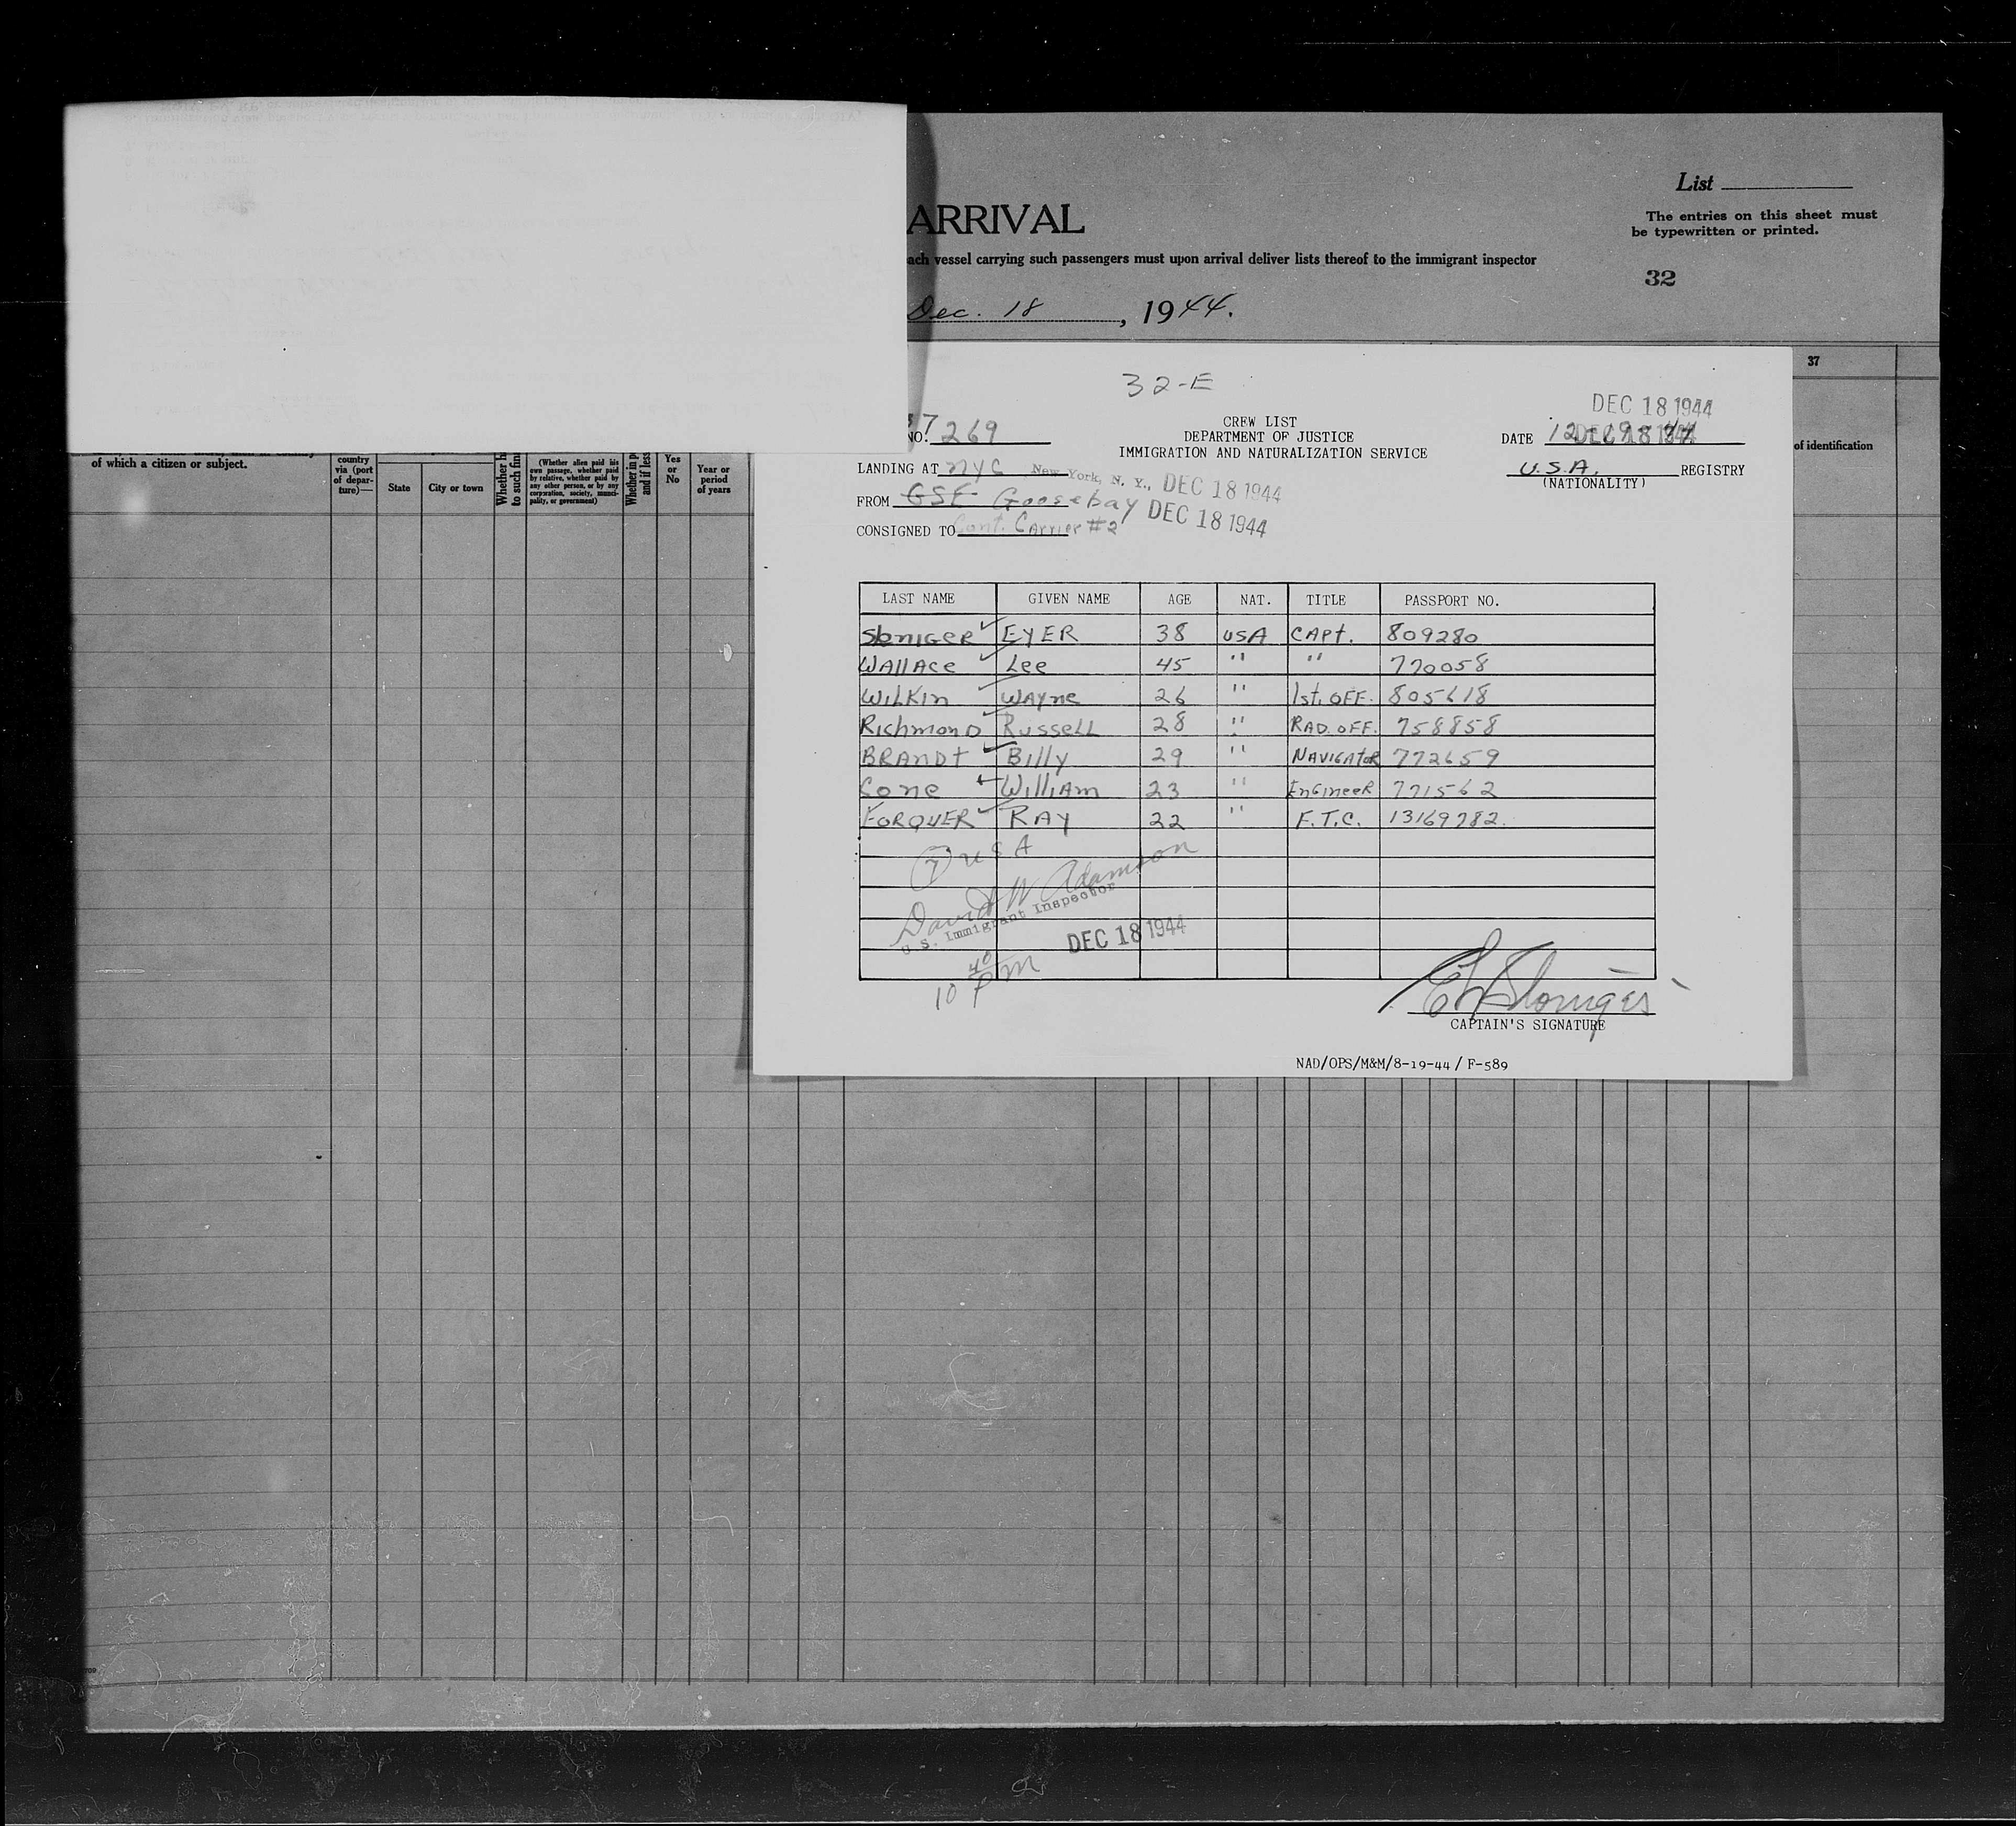 List
ARRIVAL
The entries on this sheet must
be typewritten or printed.
ach vessel carrying such passengers must upon arrival deliver lists thereof to the immigrant inspector
32
Dec. 18, 1944.
37
32-E
DEC 18 1944
NO. 7269
CREW LIST
DEPARTMENT OF JUSTICE
IMMIGRATION AND NATURALIZATION SERVICE
DATE
DEC 18 1944
U.S.A. REGISTRY
(NATIONALITY)
LANDING AT NYC New York, N. Y., DEC 18 1944
FROM GSE Goosebay DEC 18 1944
CONSIGNED TO Cont. Carrier #2
of identification
of which a citizen or subject.
country
via (port
of depar-
ture)—
State
City or town
Whether h
to such fin
(Whether alien paid his
own passage, whether paid
by relative, whether paid by
any other person, or by any
corporation, society, munici-
pality, or government)
Whether in p
and if less
Yes
or
No
Year or
period
of years
LAST NAME GIVEN NAME AGE NAT. TITLE PASSPORT NO.
SloniGeR EYER 38 USA CAPt. 809280
WAllAce Lee 45 " " 770058
WiLKin WAYne 26 " 1st. OFF. 805618
RichmonD RusseLL 28 " RAD. OFF. 758858
BRANDt Billy 29 " NAViGAtoR 772659
Cone WilliAm 23 " EnGineeR 771562
FORQUER RAY 22 " F.T.C. 13169782.
7 USA
David W Adamson
U.S. Immigrant Inspector
DEC 18 1944
10 40 PM
CAPTAIN'S SIGNATURE
NAD/OPS/M&M/8-19-44 / F-589